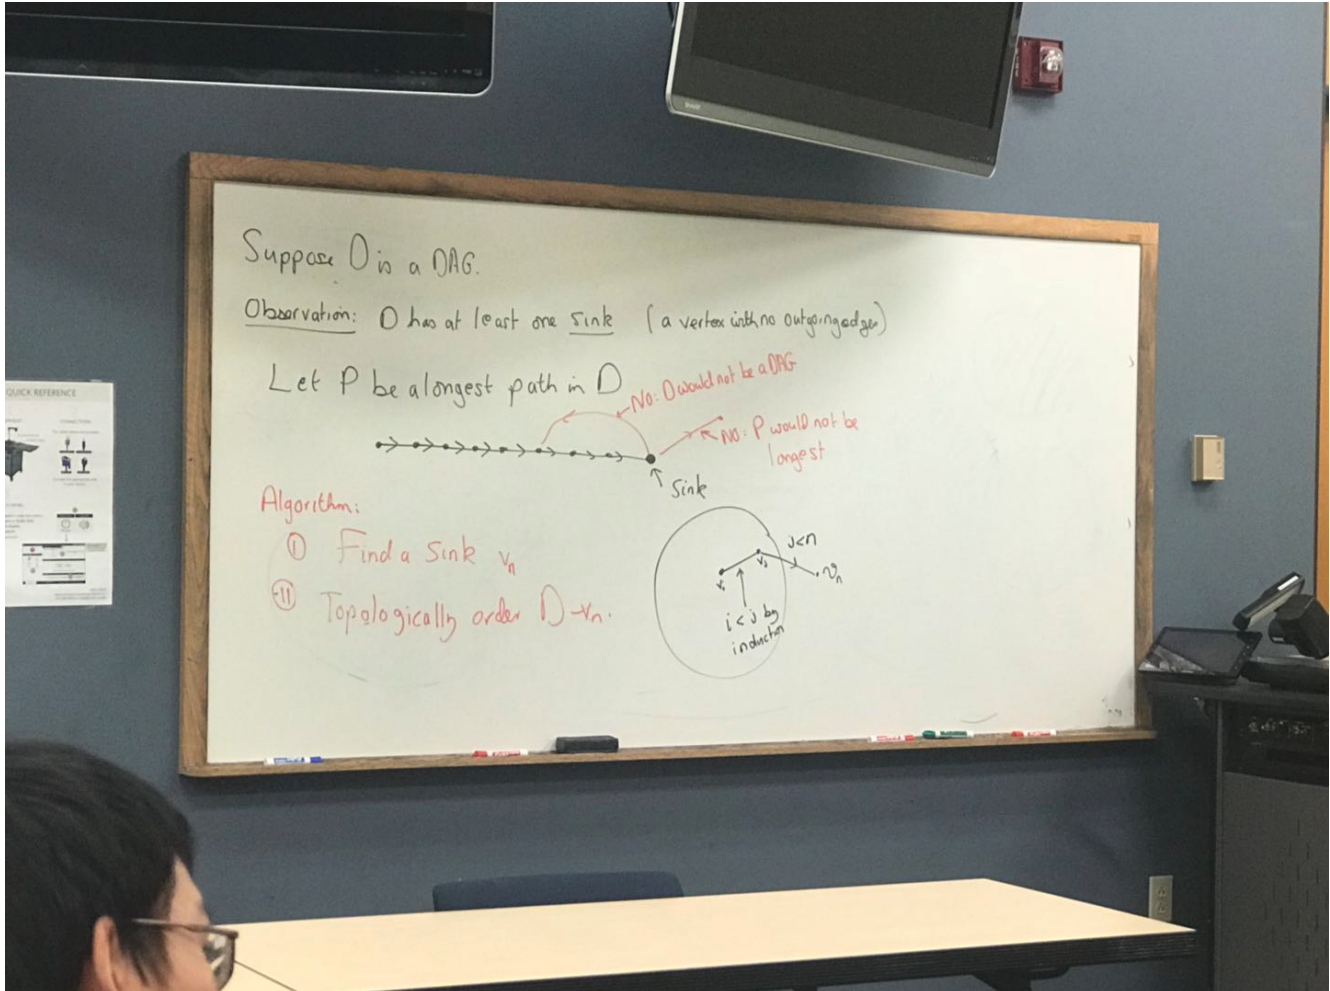 Suppose D is a DAG.
Observation: D has at least one sink (a vertex with no outgoing edges)
Let P be a longest path in D
No: D would not be a DAG
No: P would not be
longest
Sink
Algorithm:
I Find a sink vn
II Topologically order D-vn.
j<n
vi
vj
vn
i < j by
induction
QUICK REFERENCE
SHARP